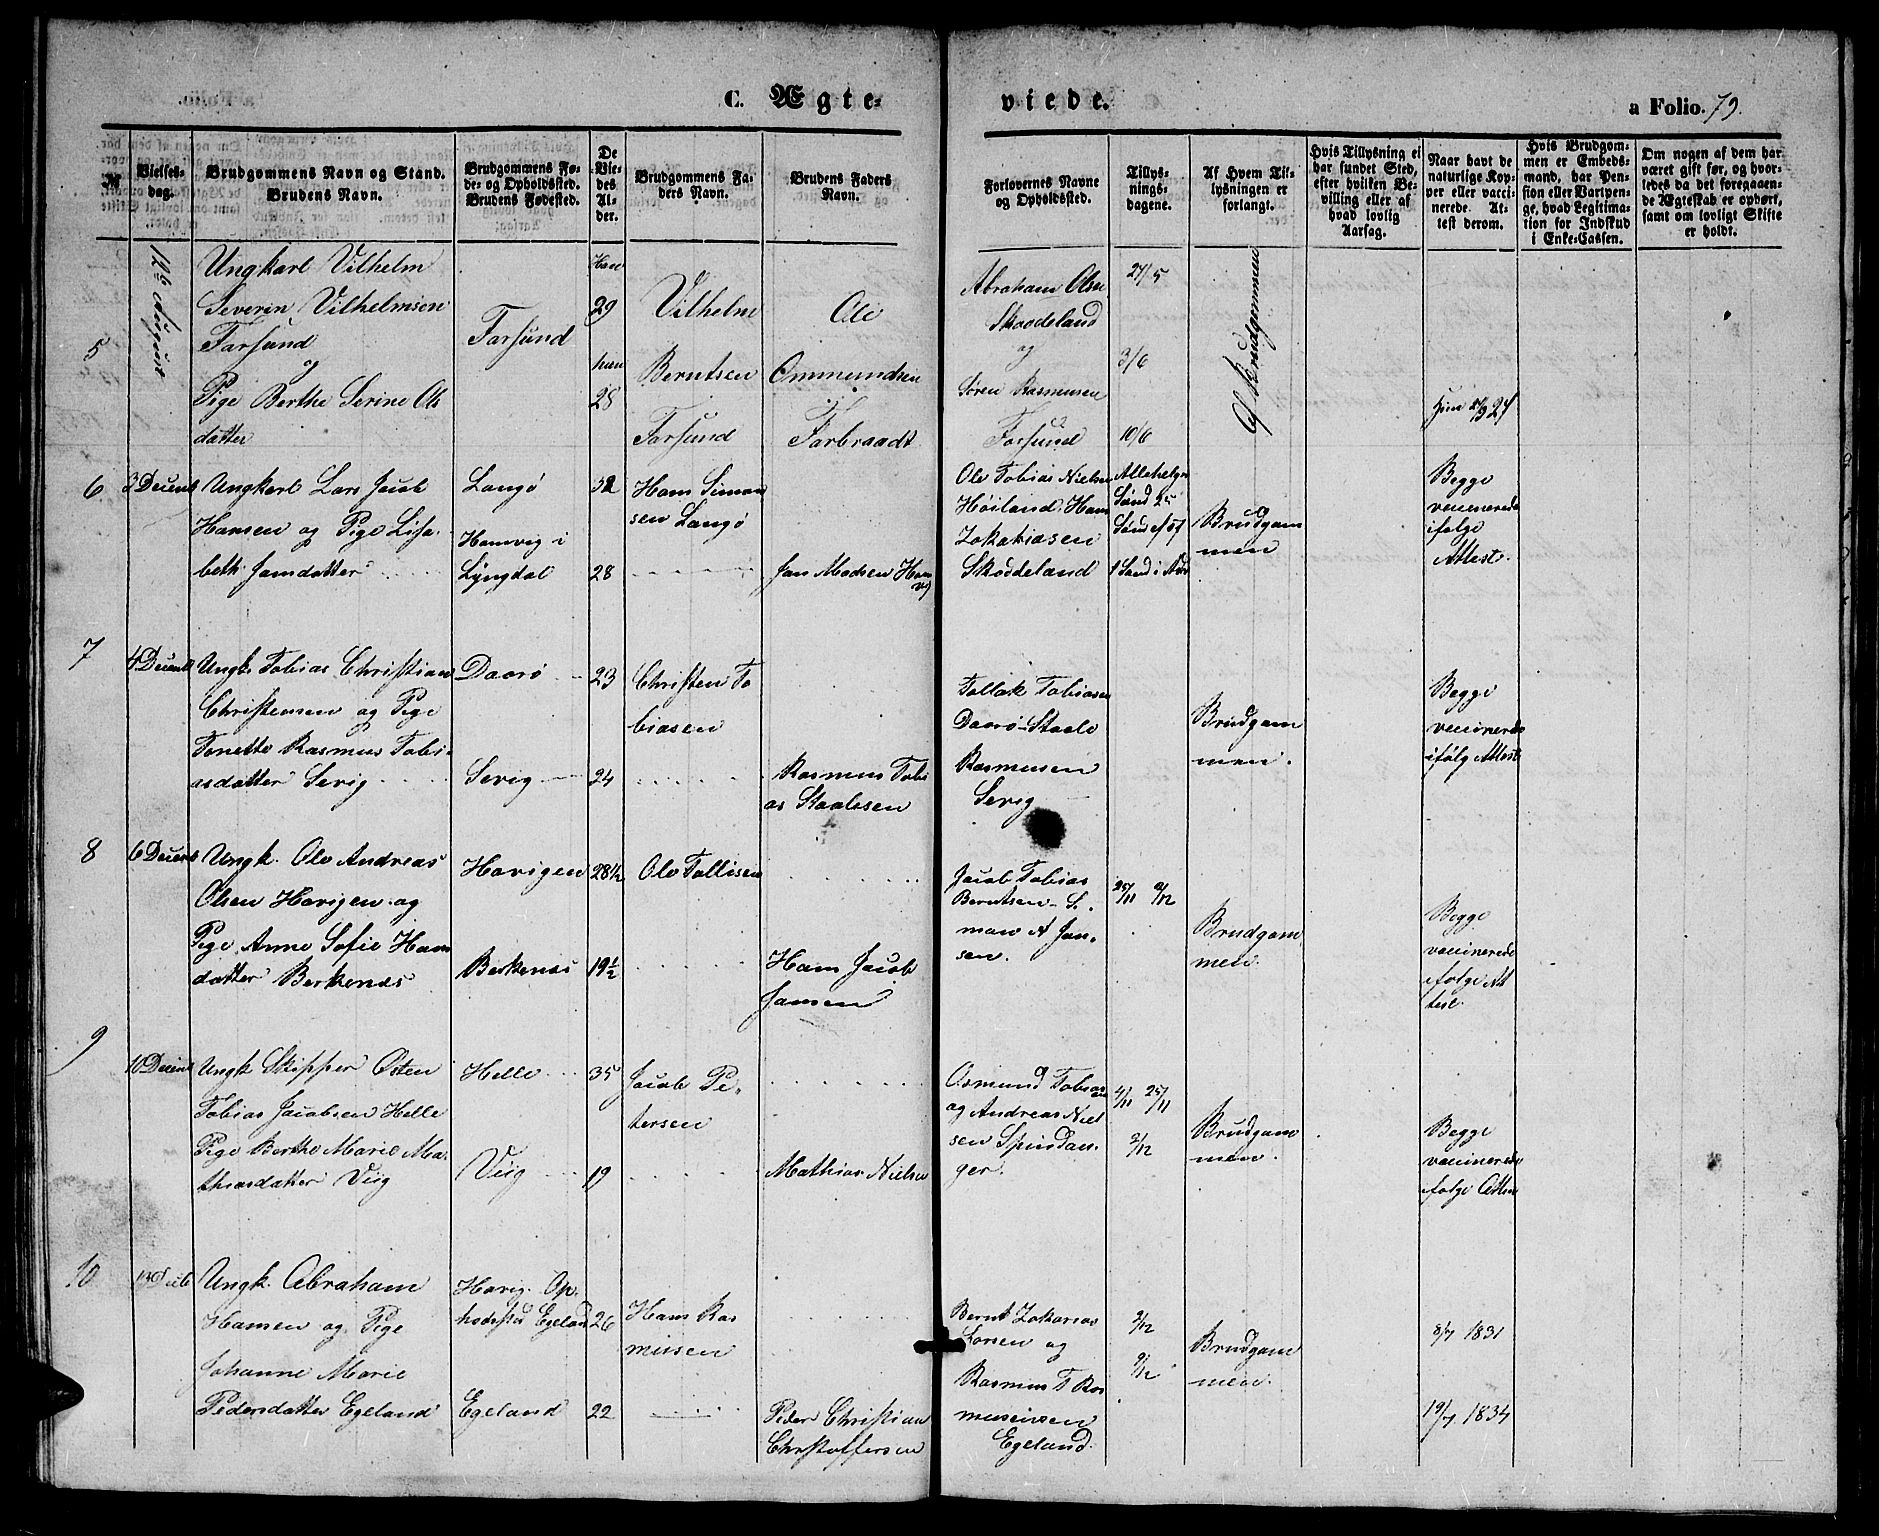 C. Ægte-
viede.
a Folio. 79.
№
Vielses-
dag.
Brudgommens Navn og Stand.
Brudens Navn.
Brudgommens Fø-
de- og Opholdssted.
Brudens Fødested.
De
Vie-
des
Al-
der.
Brudgommens Fa-
ders Navn.
Brudens Faders
Navn.
Forlovernes Navne
og Opholdssted.
Tillys-
nings-
dagene.
Af Hvem Til-
lysningen er
forlangt.
Hvis Tillysning ei
har fundet Sted,
efter hvilken Be-
villing eller af
hvad lovlig
Aarsag.
Naar havt de
naturlige Kop-
per eller vacci-
nerede. At-
test derom.
Hvis Brudgom-
men er Embeds-
mand, har Pen-
sion eller Vartpen-
ge, hvad Legitima-
tion for Indskud
i Enke-Cassen.
Om nogen af dem har
været gift før, og hvor-
ledes da det foregaaen-
de Ægteskab er ophørt,
samt om lovligt Skifte
er holdt.
5
12te August
Ungkarl Vilhelm
Severin Vilhelmsen
Farsund
og
Pige Berthe Serine Ols
datter
Farsund
Han
29
hun
28
Vilhelm
Berntsen
Farsund
Ole
Ommundsen
Farbraadt
Abraham Olsen
Skoodeland
og
Søren Rasmusen
Farsund
27/5
3/6
10/6
Af Brudgommen
6
3 Decemb
Ungkarl Lars Jacob
Hansen og Pige Lisa-
beth Jansdatter
Langø
Hamvig i
Lyngdal
32
28
Hans Simon
sen Langø
Jan Madsen Ham
vig
Ole Tobias Nielsen
Høiland. Hans
Zakariasen
Skoddeland
Allehelgn
Sønd 25
1 Sønd i Adv
Brudgom
men
Begge
vaccinerede
ifølge
Attest.
7
4 Decemb
Ungk. Tobias Christian
Christensen og Pige
Tonette Rasmus Tobi-
asdatter Sevig
Daarø
Sevig
23
24
Christen To
biasen
Rasmus Tobi
as Staalesen
Tollak Tobiasen
Daarø - Staale
Rasmusen
Sevig
Brudgom
men.
Begge
vaccinerede
ifølg Attest
8
6 Decemb
Ungk. Ole Andreas
Olsen Havigen og
Pige Anne Sofie Hans
datter Berkenæs
Havigen
Berkenæs
28½
19½
Ole Tollisen
Hans Jacob
Jansen
Jacob Tobias
Berntsen - S.
man A Jan-
sen.
25/11 2/12
Brudgom
men.
Begge
vaccinerede
ifølge At
test.
9
10 Decemb
Ungk Skipper Osten
Tobias Jacobsen Helle
Pige Berthe Marie Ma-
thiasdatter Viig
Helle
Viig
35
19
Jacob Pe-
tersen
Mathias Nielsen
Osmund Tobiasen
og Andreas Niel
sen Spindan-
ger.
4/11 25/11
2/12
Brudgom
men.
Begge
vaccinerede
ifølge Attest
10
Ungk. Abraham
Hansen og Pige
Johanne Marie
Pedersdatter Egeland
Havig. Op-
holdssted Egeland
Egeland
26
22
Hans Ras
musen
Peder Christian
Christoffersen
Bernt Zakarias
Larsen og
Rasmus T Ras
musensen
Egeland.
2/12
9/12
Brudgom
men.
8/7 1831
19/7 1834